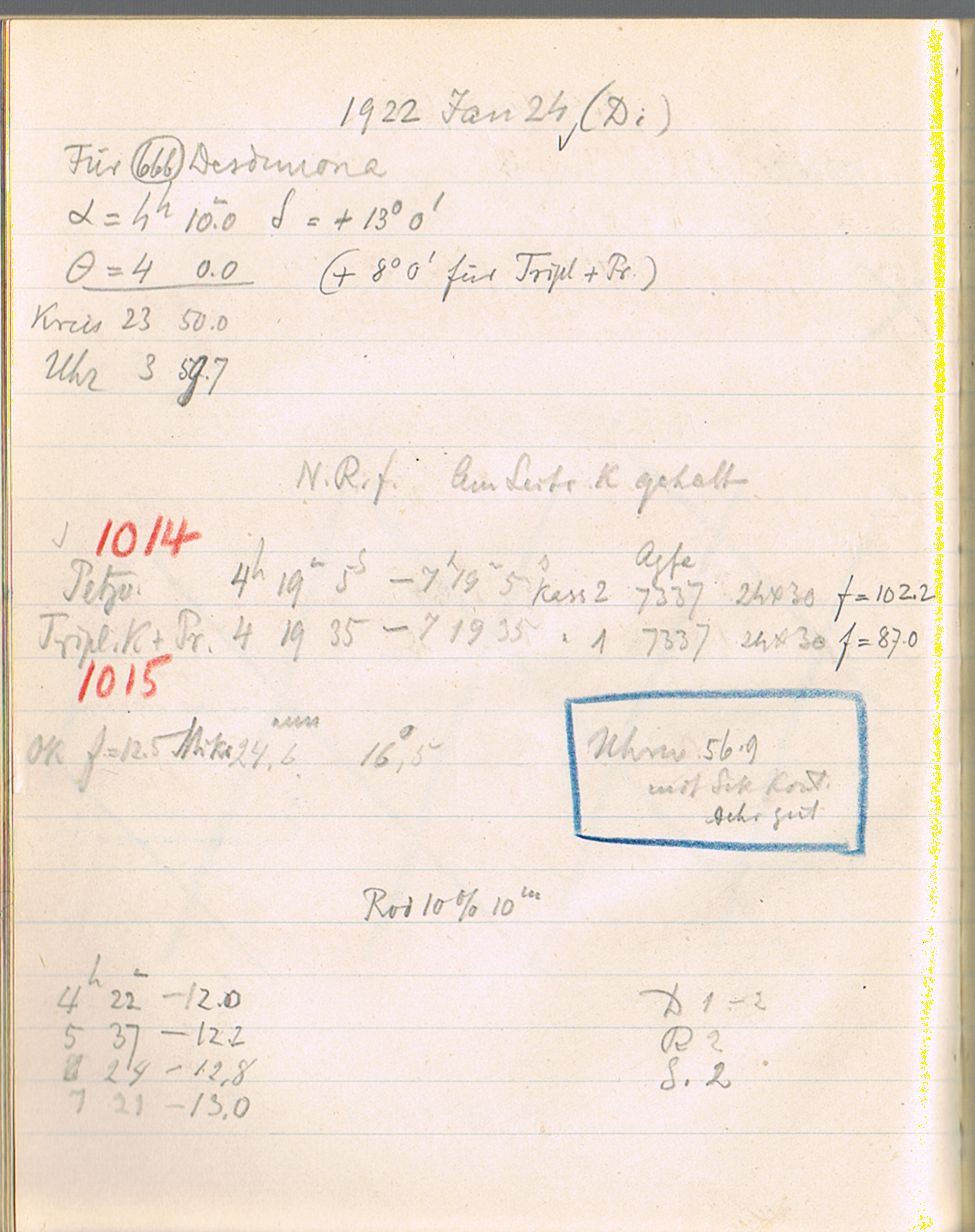 1922 Jan 24 (Di)
Für (666) Desdemona
α = 4h 10m.0 δ = + 13° 0'
θ = 4 0.0 (+ 8° 0' für Tripl + Pr.)
Kreis 23 50.0
Uhr 3 59.7
N.R.f. Am Leitr. K gehalt
1014
Agfa
Petzv. 4h 19m 5s – 7h 19m 5s Kass 2 7337 24x30 f = 102.2
Tripl. K + Pr. 4 19 35 – 7 19 35 " 1 7337 24x30 f = 87.0
1015
OK f = 12.5 Mikr 24,6 mm 16°,5
Uhrw. 56.9
mit Sek Kont.
sehr gut
Rod 10% 10m
4h 22m –12.0 D 1–2
5 37 –12.2 R 2
24 –12,8 S. 2
7 21 –13,0